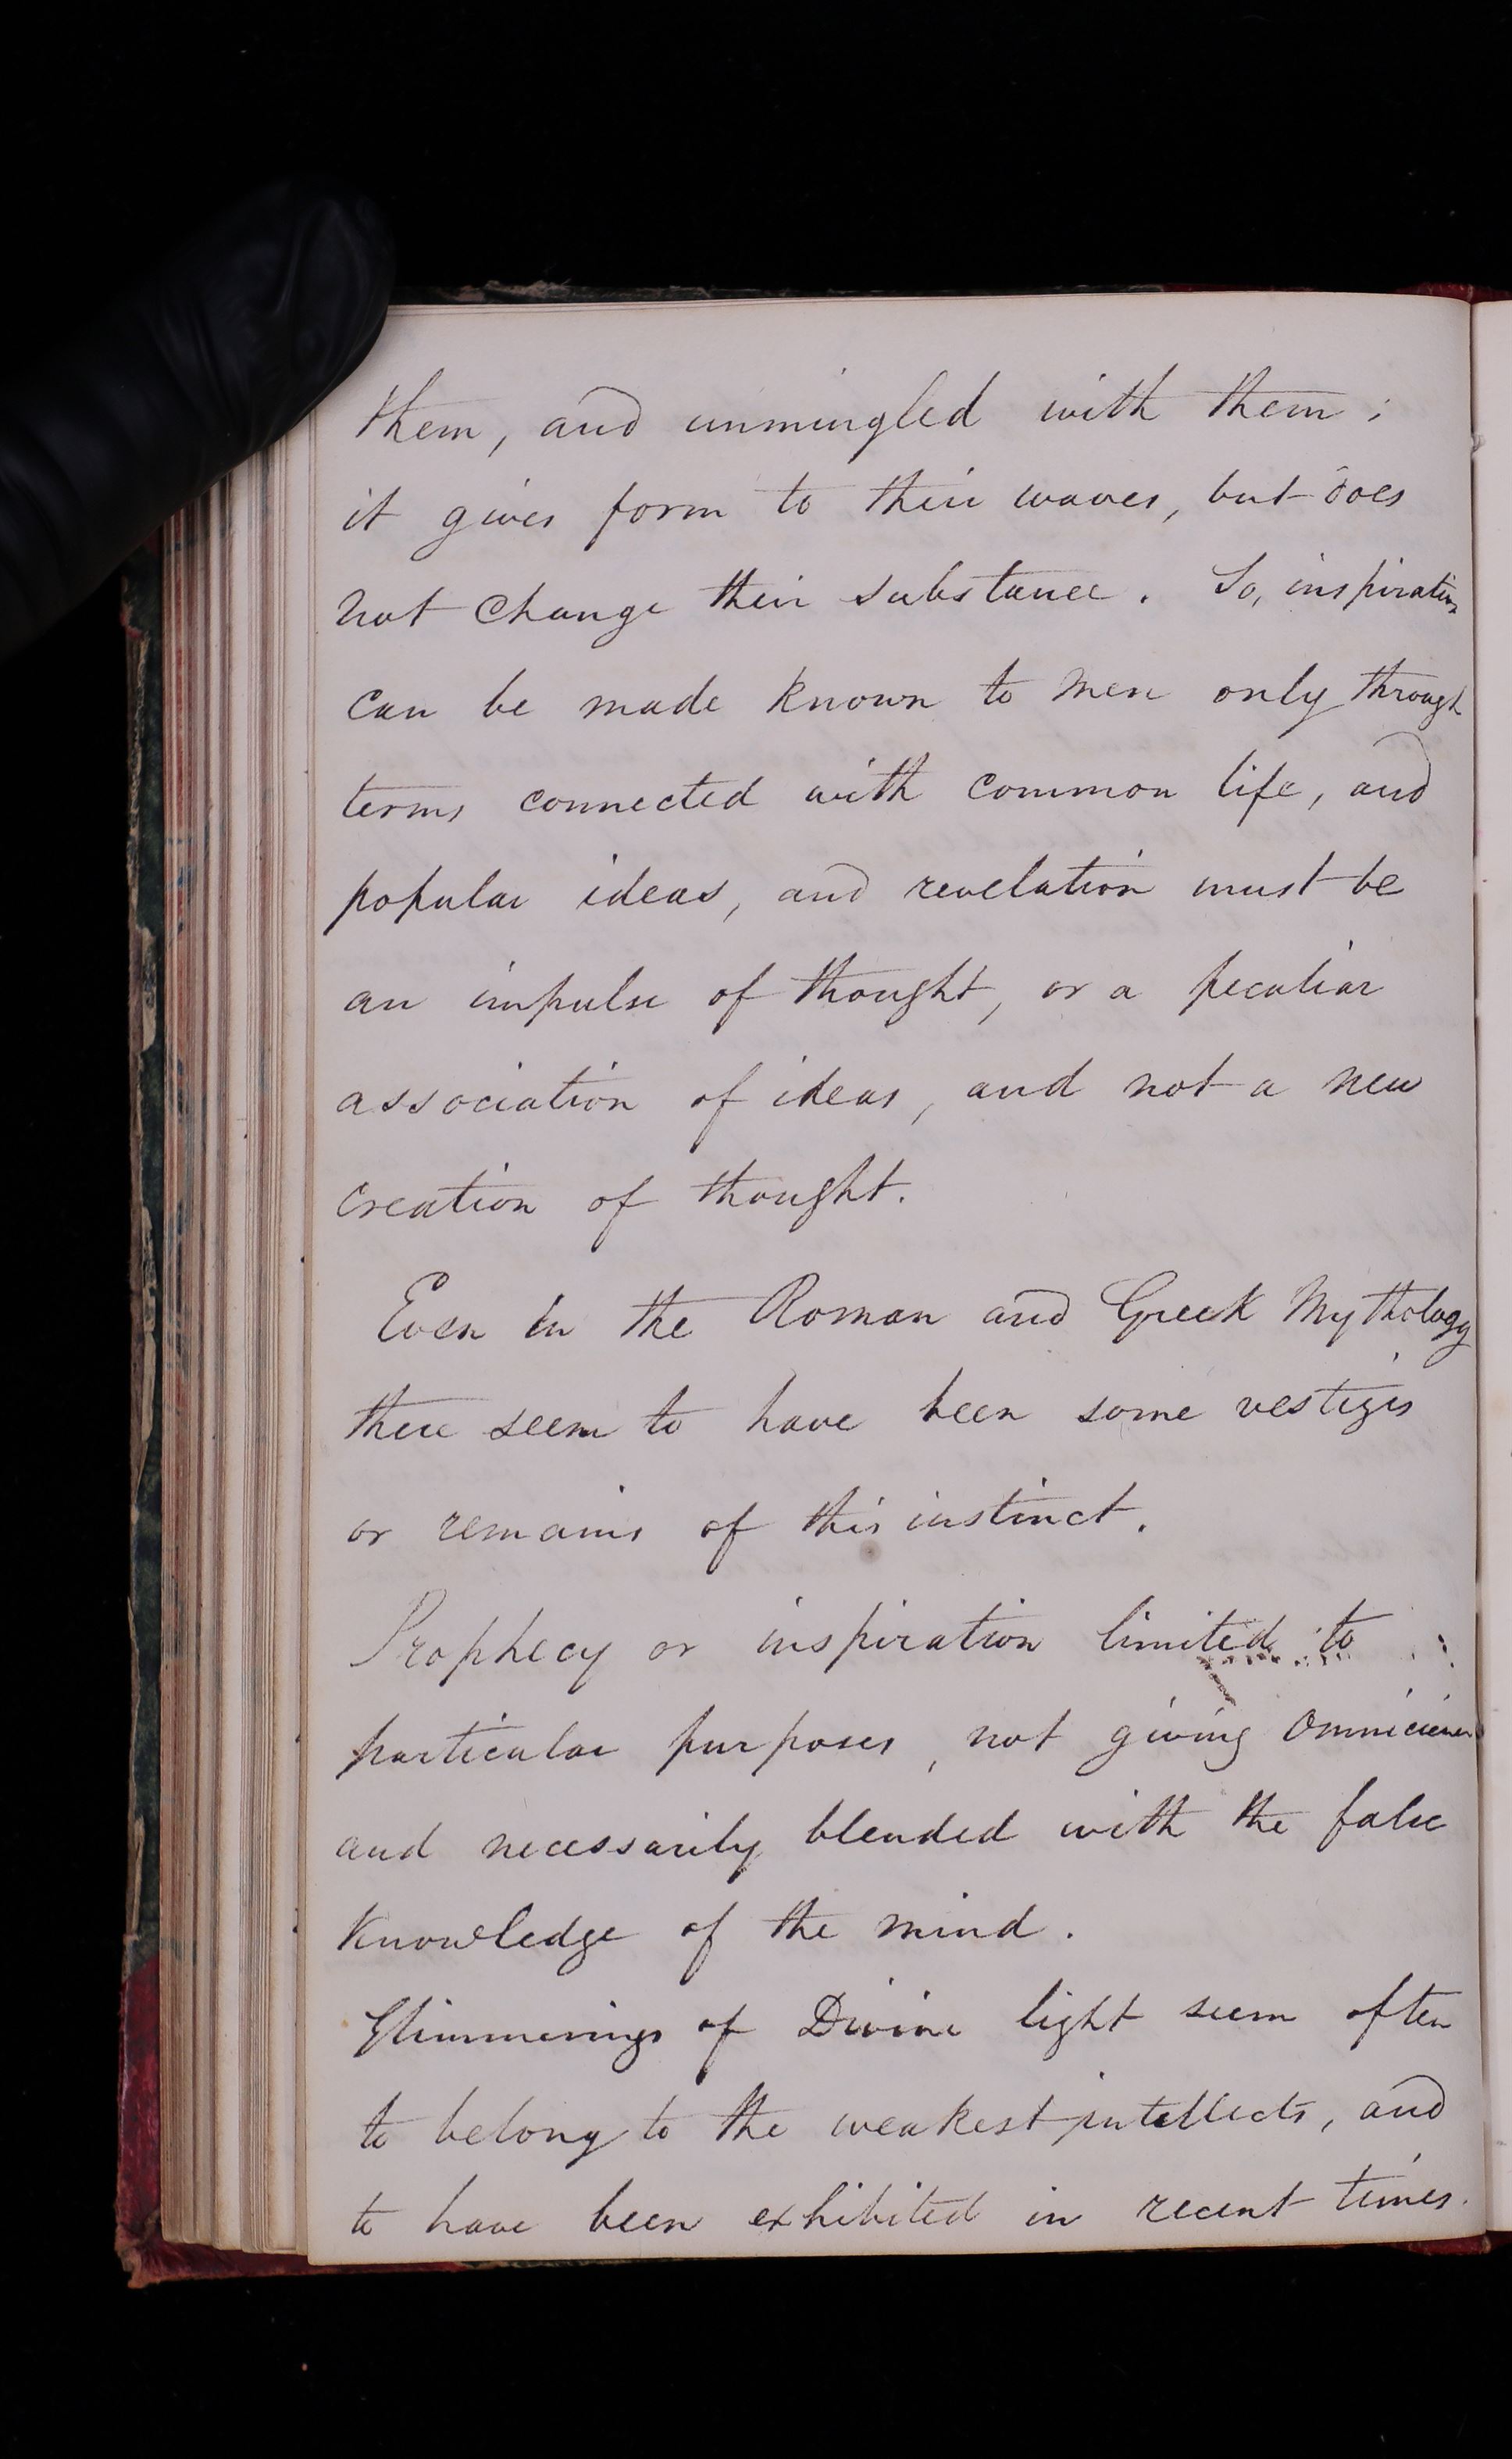 them, and unmingled with them;
it gives form to their waves, but does
not change their substance. So, inspiration
can be made known to men only through
terms connected with common life, and
popular ideas, and revelation must be
an impulse of thought, or a peculiar
association of ideas, and not a new
creation of thought.
Even in the Roman and Greek Mythology
there seem to have been some vestiges
or remains of this instinct.
Prophecy or inspiration limited to
particular purposes, not giving
and necessarily blended with the false
knowledge of the mind.
Glimmerings of Divine light seem often
to belong to the weakest intellects, and
to have been exhibited in recent times.